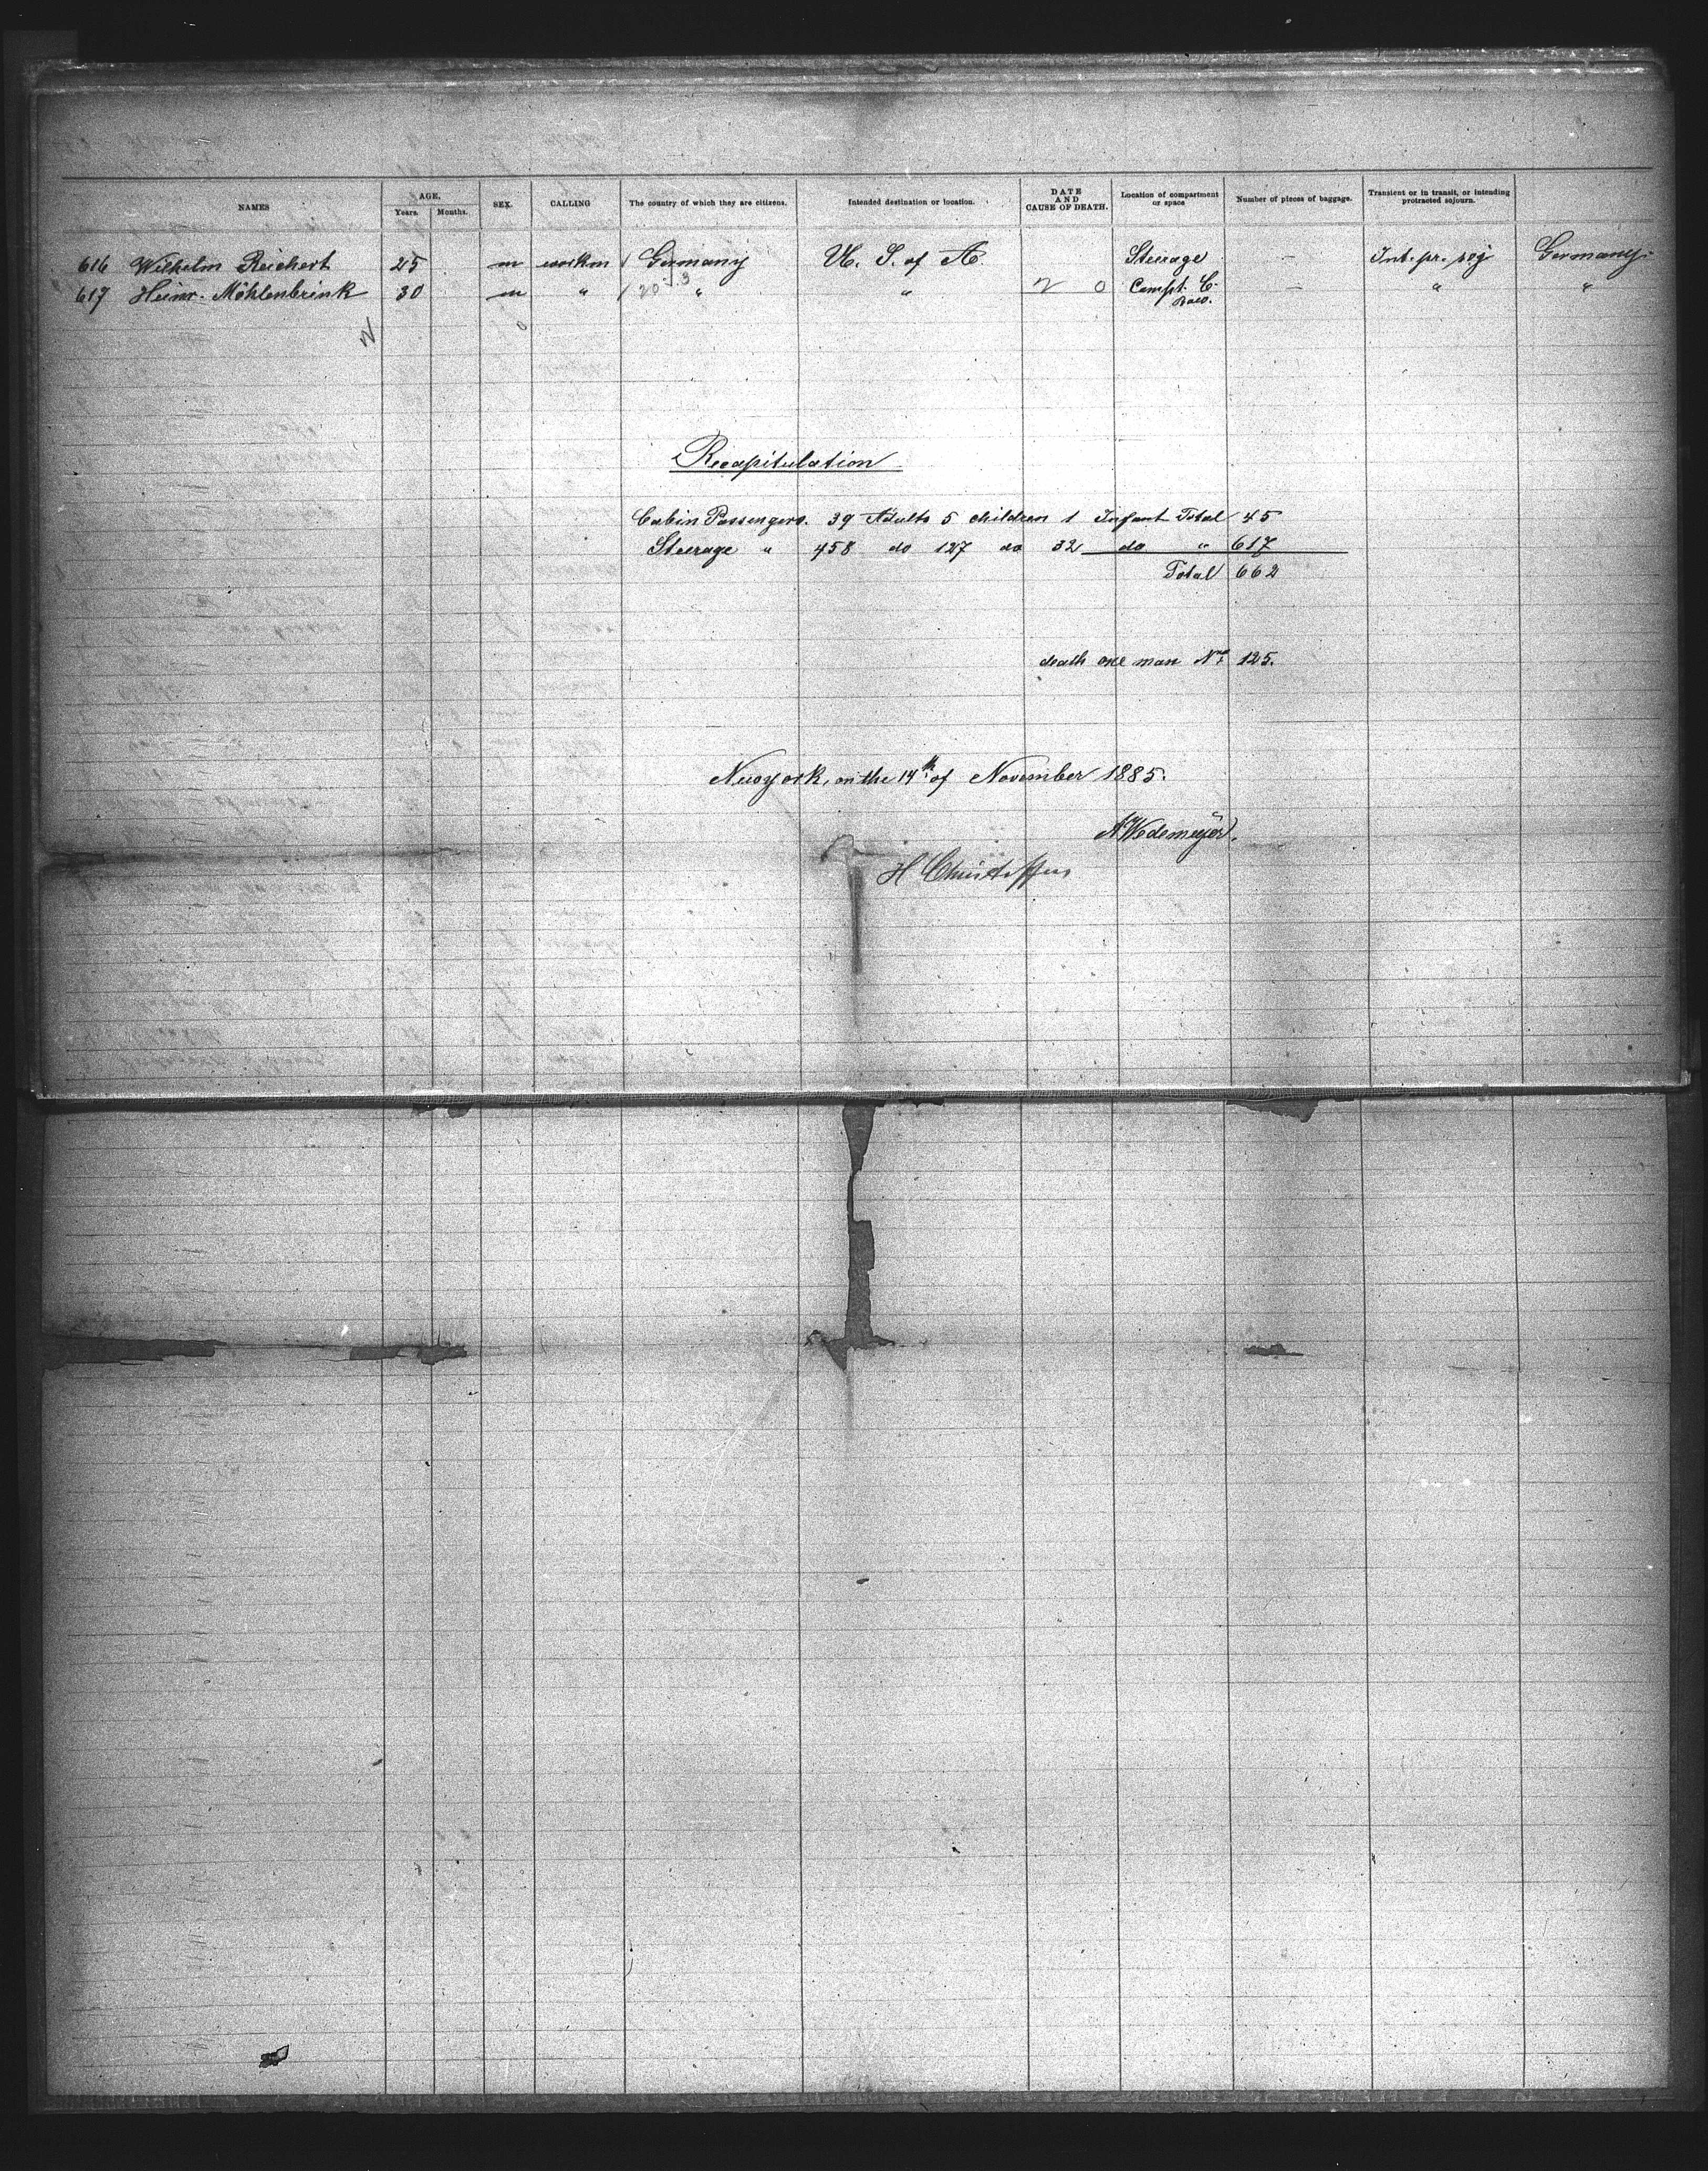 NAMES AGE. Years. Months. SEX. CALLING The country of which they are citizens. Intended destination or location. DATE AND CAUSE OF DEATH. Location of compartment or space Number of pieces of baggage. Transient or in transit, or intending protracted sojourn.
616 Wilhelm Reichert 25 m workm Germany U. S. of A. Steerage — Int. pr. soj Germany.
617 Heinr. Möhlenbrink 30 m " " " Compt. C. — " "
Recapitulation
Cabin Passengers. 39 Adults 5 children 1 Infant Total 45
Steerage " 458 do 127 do 32 do " 617
Total 662
death one man No. 125.
Newyork, on the 14th of November 1885.
A Wedemeyer.
H Christoffers